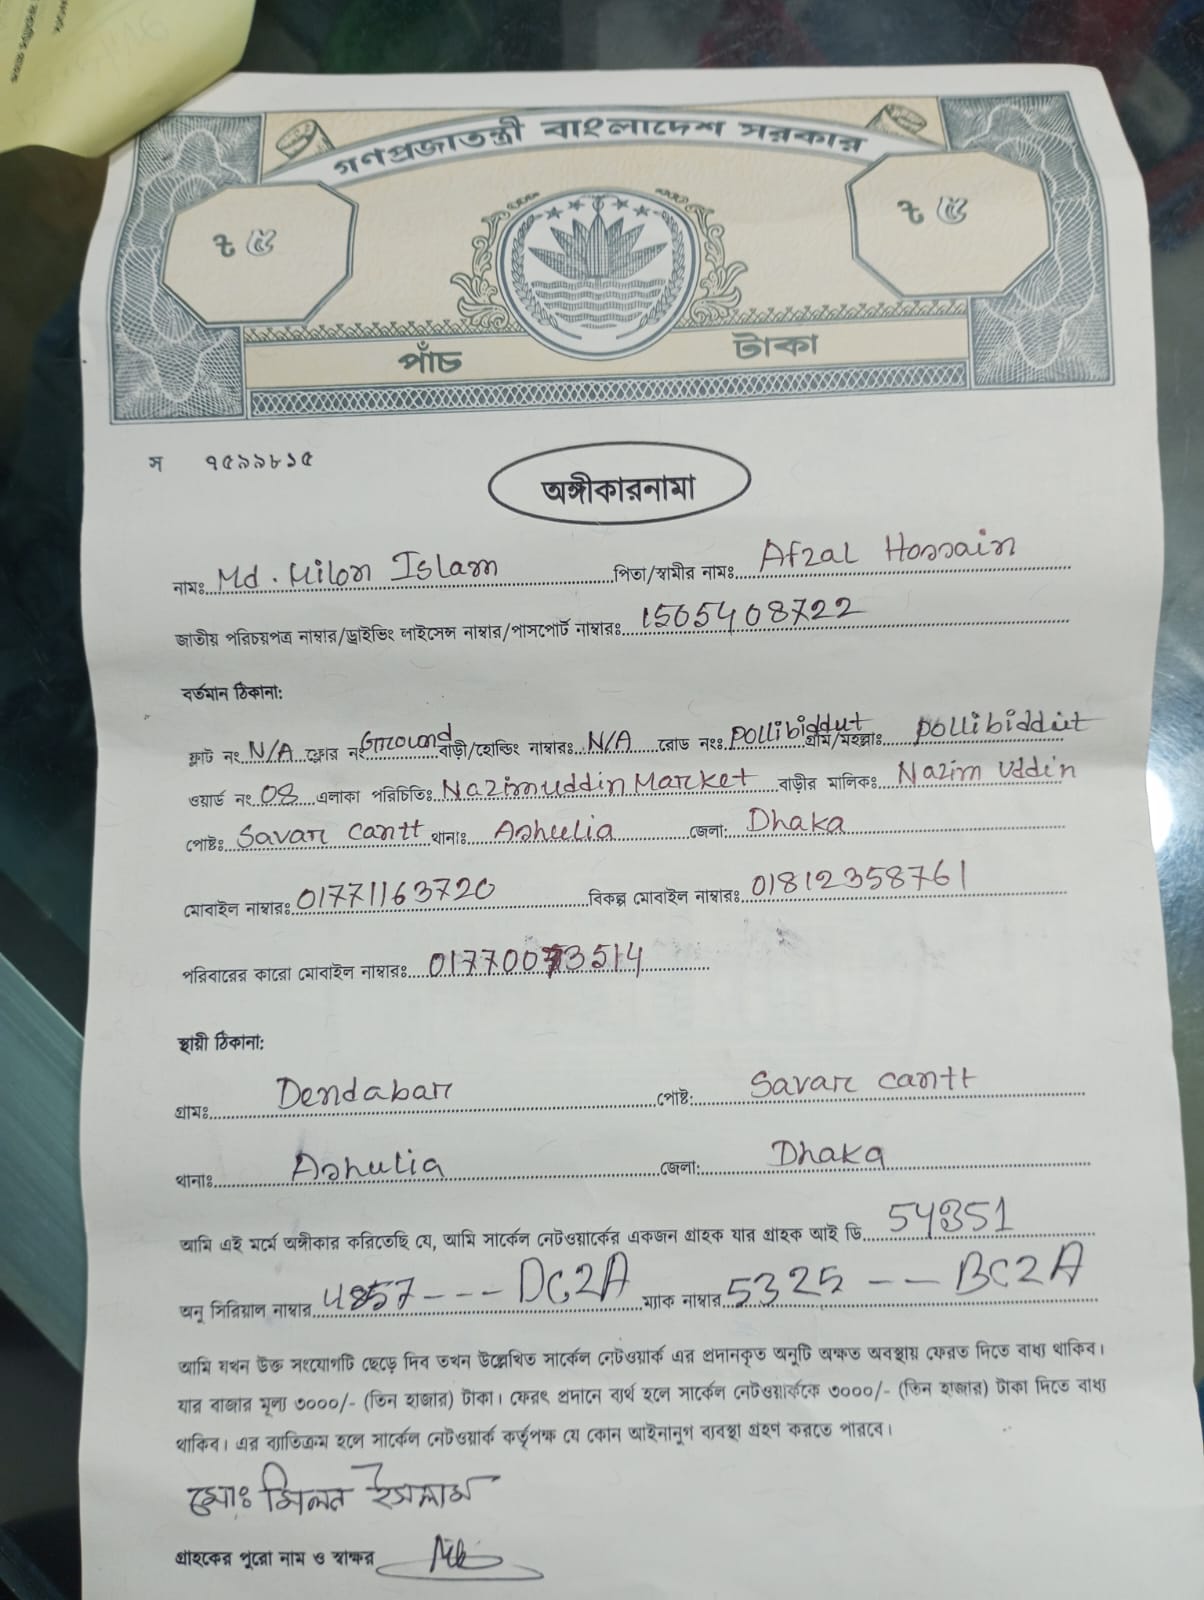 গণপ্রজাতন্ত্রী বাংলাদেশ সরকার
৳ ৫ ৳ ৫
পাঁচ টাকা
স ৭৫৯৯৮১৫
অঙ্গীকারনামা
নামঃ Md. Milon Islam পিতা/স্বামীর নামঃ Afzal Hossain
জাতীয় পরিচয়পত্র নাম্বার/ড্রাইভিং লাইসেন্স নাম্বার/পাসপোর্ট নাম্বারঃ 1505408722
বর্তমান ঠিকানা:
ফ্লাট নং N/A ফ্লোর নং Ground বাড়ী/হোল্ডিং নাম্বারঃ N/A রোড নংঃ Pollibiddut গ্রাম/মহল্লাঃ Pollibiddut
ওয়ার্ড নং 08 এলাকা পরিচিতিঃ Nazimuddin Market বাড়ীর মালিকঃ Nazim Uddin
পোষ্টঃ Savar Cantt থানাঃ Ashulia জেলা: Dhaka
মোবাইল নাম্বারঃ 01771163720 বিকল্প মোবাইল নাম্বারঃ 01812358761
পরিবারের কারো মোবাইল নাম্বারঃ
স্থায়ী ঠিকানা:
গ্রামঃ Dendabar পোষ্ট: Savar Cantt
থানাঃ Ashulia জেলা: Dhaka
আমি এই মর্মে অঙ্গীকার করিতেছি যে, আমি সার্কেল নেটওয়ার্কের একজন গ্রাহক যার গ্রাহক আই ডি 54351
অনু সিরিয়াল নাম্বার 4857---DC2A ম্যাক নাম্বার 5325---BC2A
আমি যখন উক্ত সংযোগটি ছেড়ে দিব তখন উল্লেখিত সার্কেল নেটওয়ার্ক এর প্রদানকৃত অনুটি অক্ষত অবস্থায় ফেরত দিতে বাধ্য থাকিব।
যার বাজার মূল্য ৩০০০/- (তিন হাজার) টাকা। ফেরৎ প্রদানে ব্যর্থ হলে সার্কেল নেটওয়ার্ককে ৩০০০/- (তিন হাজার) টাকা দিতে বাধ্য
থাকিব। এর ব্যাতিক্রম হলে সার্কেল নেটওয়ার্ক কর্তৃপক্ষ যে কোন আইনানুগ ব্যবস্থা গ্রহণ করতে পারবে।
মোঃ মিলন ইসলাম
গ্রাহকের পুরো নাম ও স্বাক্ষর